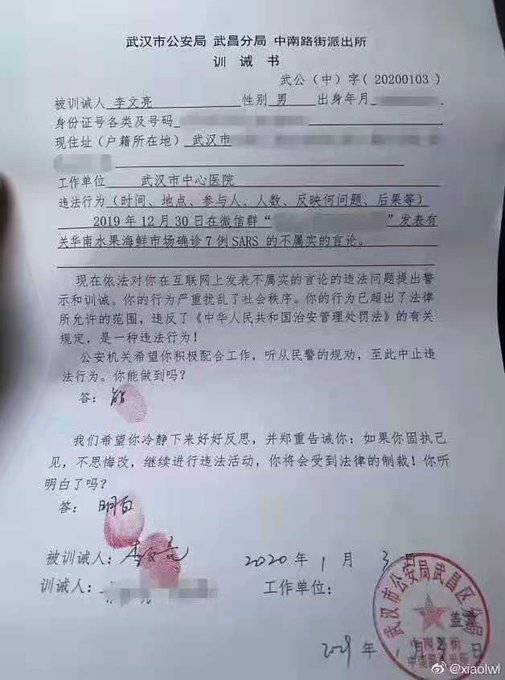 武汉市公安局 武昌分局 中南路街派出所
训 诫 书
武公（中）字（20200103）
被训诫人 李文亮 性别 男 出身年月
身份证号各类及号码
现住址（户籍所在地） 武汉市
工作单位 武汉市中心医院
违法行为（时间、地点、参与人、人数、反映何问题、后果等）
2019 年 12 月 30 日在微信群“ ”发表有
关华南水果海鲜市场确诊 7 例 SARS 的不属实的言论。
现在依法对你在互联网上发表不属实的言论的违法问题提出警
示和训诫。你的行为严重扰乱了社会秩序。你的行为已超出了法律
所允许的范围，违反了《中华人民共和国治安管理处罚法》的有关
规定，是一种违法行为！
公安机关希望你积极配合工作，听从民警的规劝，至此中止违
法行为。你能做到吗？
答： 能
我们希望你冷静下来好好反思，并郑重告诫你：如果你固执己
见，不思悔改，继续进行违法活动，你将会受到法律的制裁！你听
明白了吗？
答： 明白
被训诫人：李文亮 2020 年 1 月 3 日
训诫人： 工作单位：
武汉市公安局武昌区分局
盖章
中南路街
年 月 日
@xiaolwl